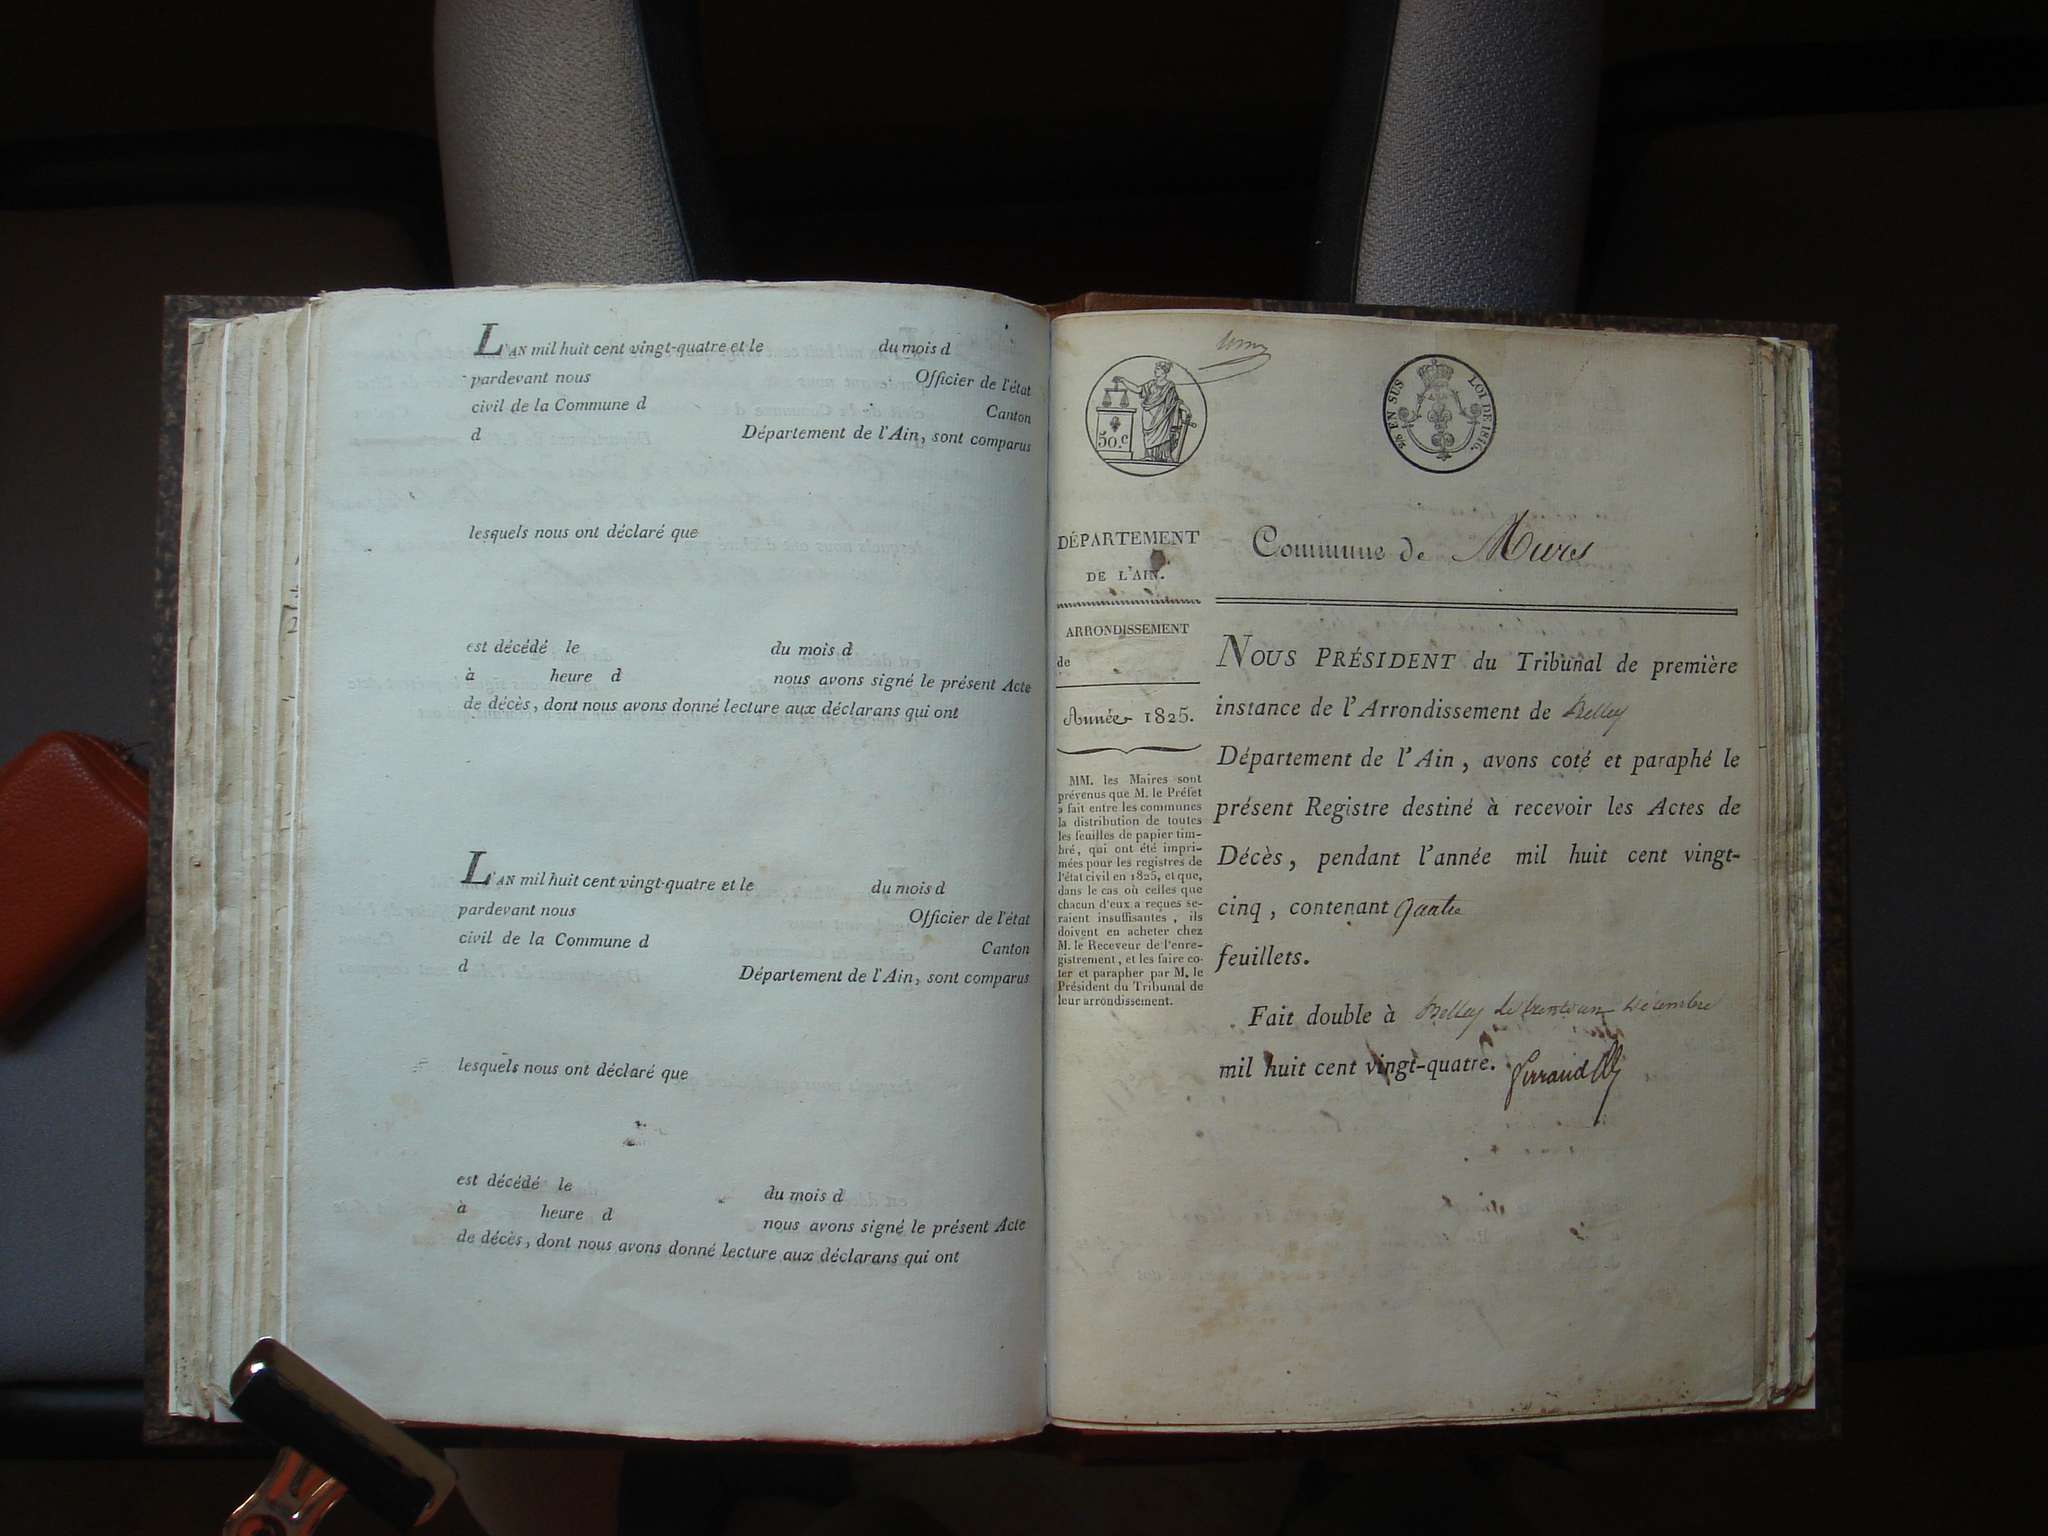 L'AN mil huit cent vingt-quatre et le du mois d
pardevant nous Officier de l'état
civil de la Commune d Canton
d Département de l'Ain, sont comparus
lesquels nous ont déclaré que
est décédé le du mois d
à heure d nous avons signé le présent Acte
de décès, dont nous avons donné lecture aux déclarans qui ont
L'AN mil huit cent vingt-quatre et le du mois d
pardevant nous Officier de l'état
civil de la Commune d Canton
d Département de l'Ain, sont comparus
lesquels nous ont déclaré que
est décédé le du mois d
à heure d nous avons signé le présent Acte
de décès, dont nous avons donné lecture aux déclarans qui ont
50.c
EN SUS LOI DE 1816.
DÉPARTEMENT
DE L'AIN.
ARRONDISSEMENT
de
Année 1825.
MM. les Maires sont
prévenus que M. le Préfet
a fait entre les communes
la distribution de toutes
les feuilles de papier tim-
bré, qui ont été impri-
mées pour les registres de
l'état civil en 1825, et que,
dans le cas où celles que
chacun d'eux a reçues se-
raient insuffisantes, ils
doivent en acheter chez
M. le Receveur de l'enre-
gistrement, et les faire co-
ter et parapher par M. le
Président du Tribunal de
leur arrondissement.
Commune de Mures
NOUS PRÉSIDENT du Tribunal de première
instance de l'Arrondissement de Belley
Département de l'Ain, avons coté et paraphé le
présent Registre destiné à recevoir les Actes de
Décès, pendant l'année mil huit cent vingt-
cinq, contenant quatre
feuillets.
Fait double à Belley le trente un décembre
mil huit cent vingt-quatre.